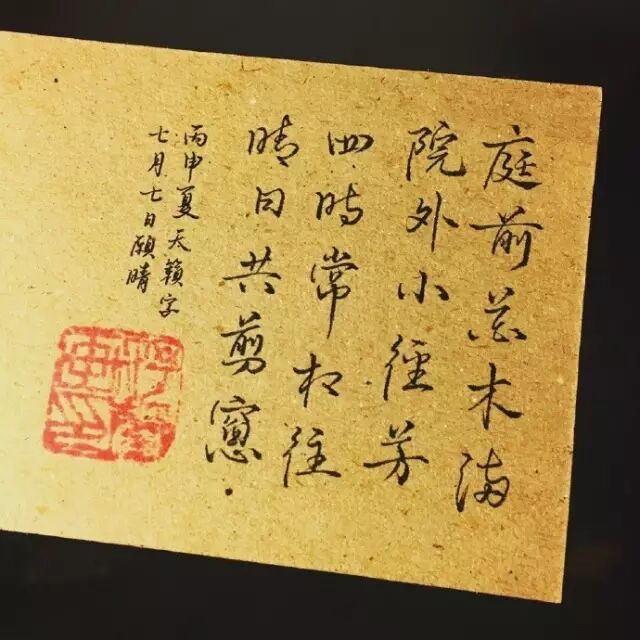 庭前花木满
院外小径芳
四時常相往
晴日共剪窻
丙申夏天籟字
七月七日願晴